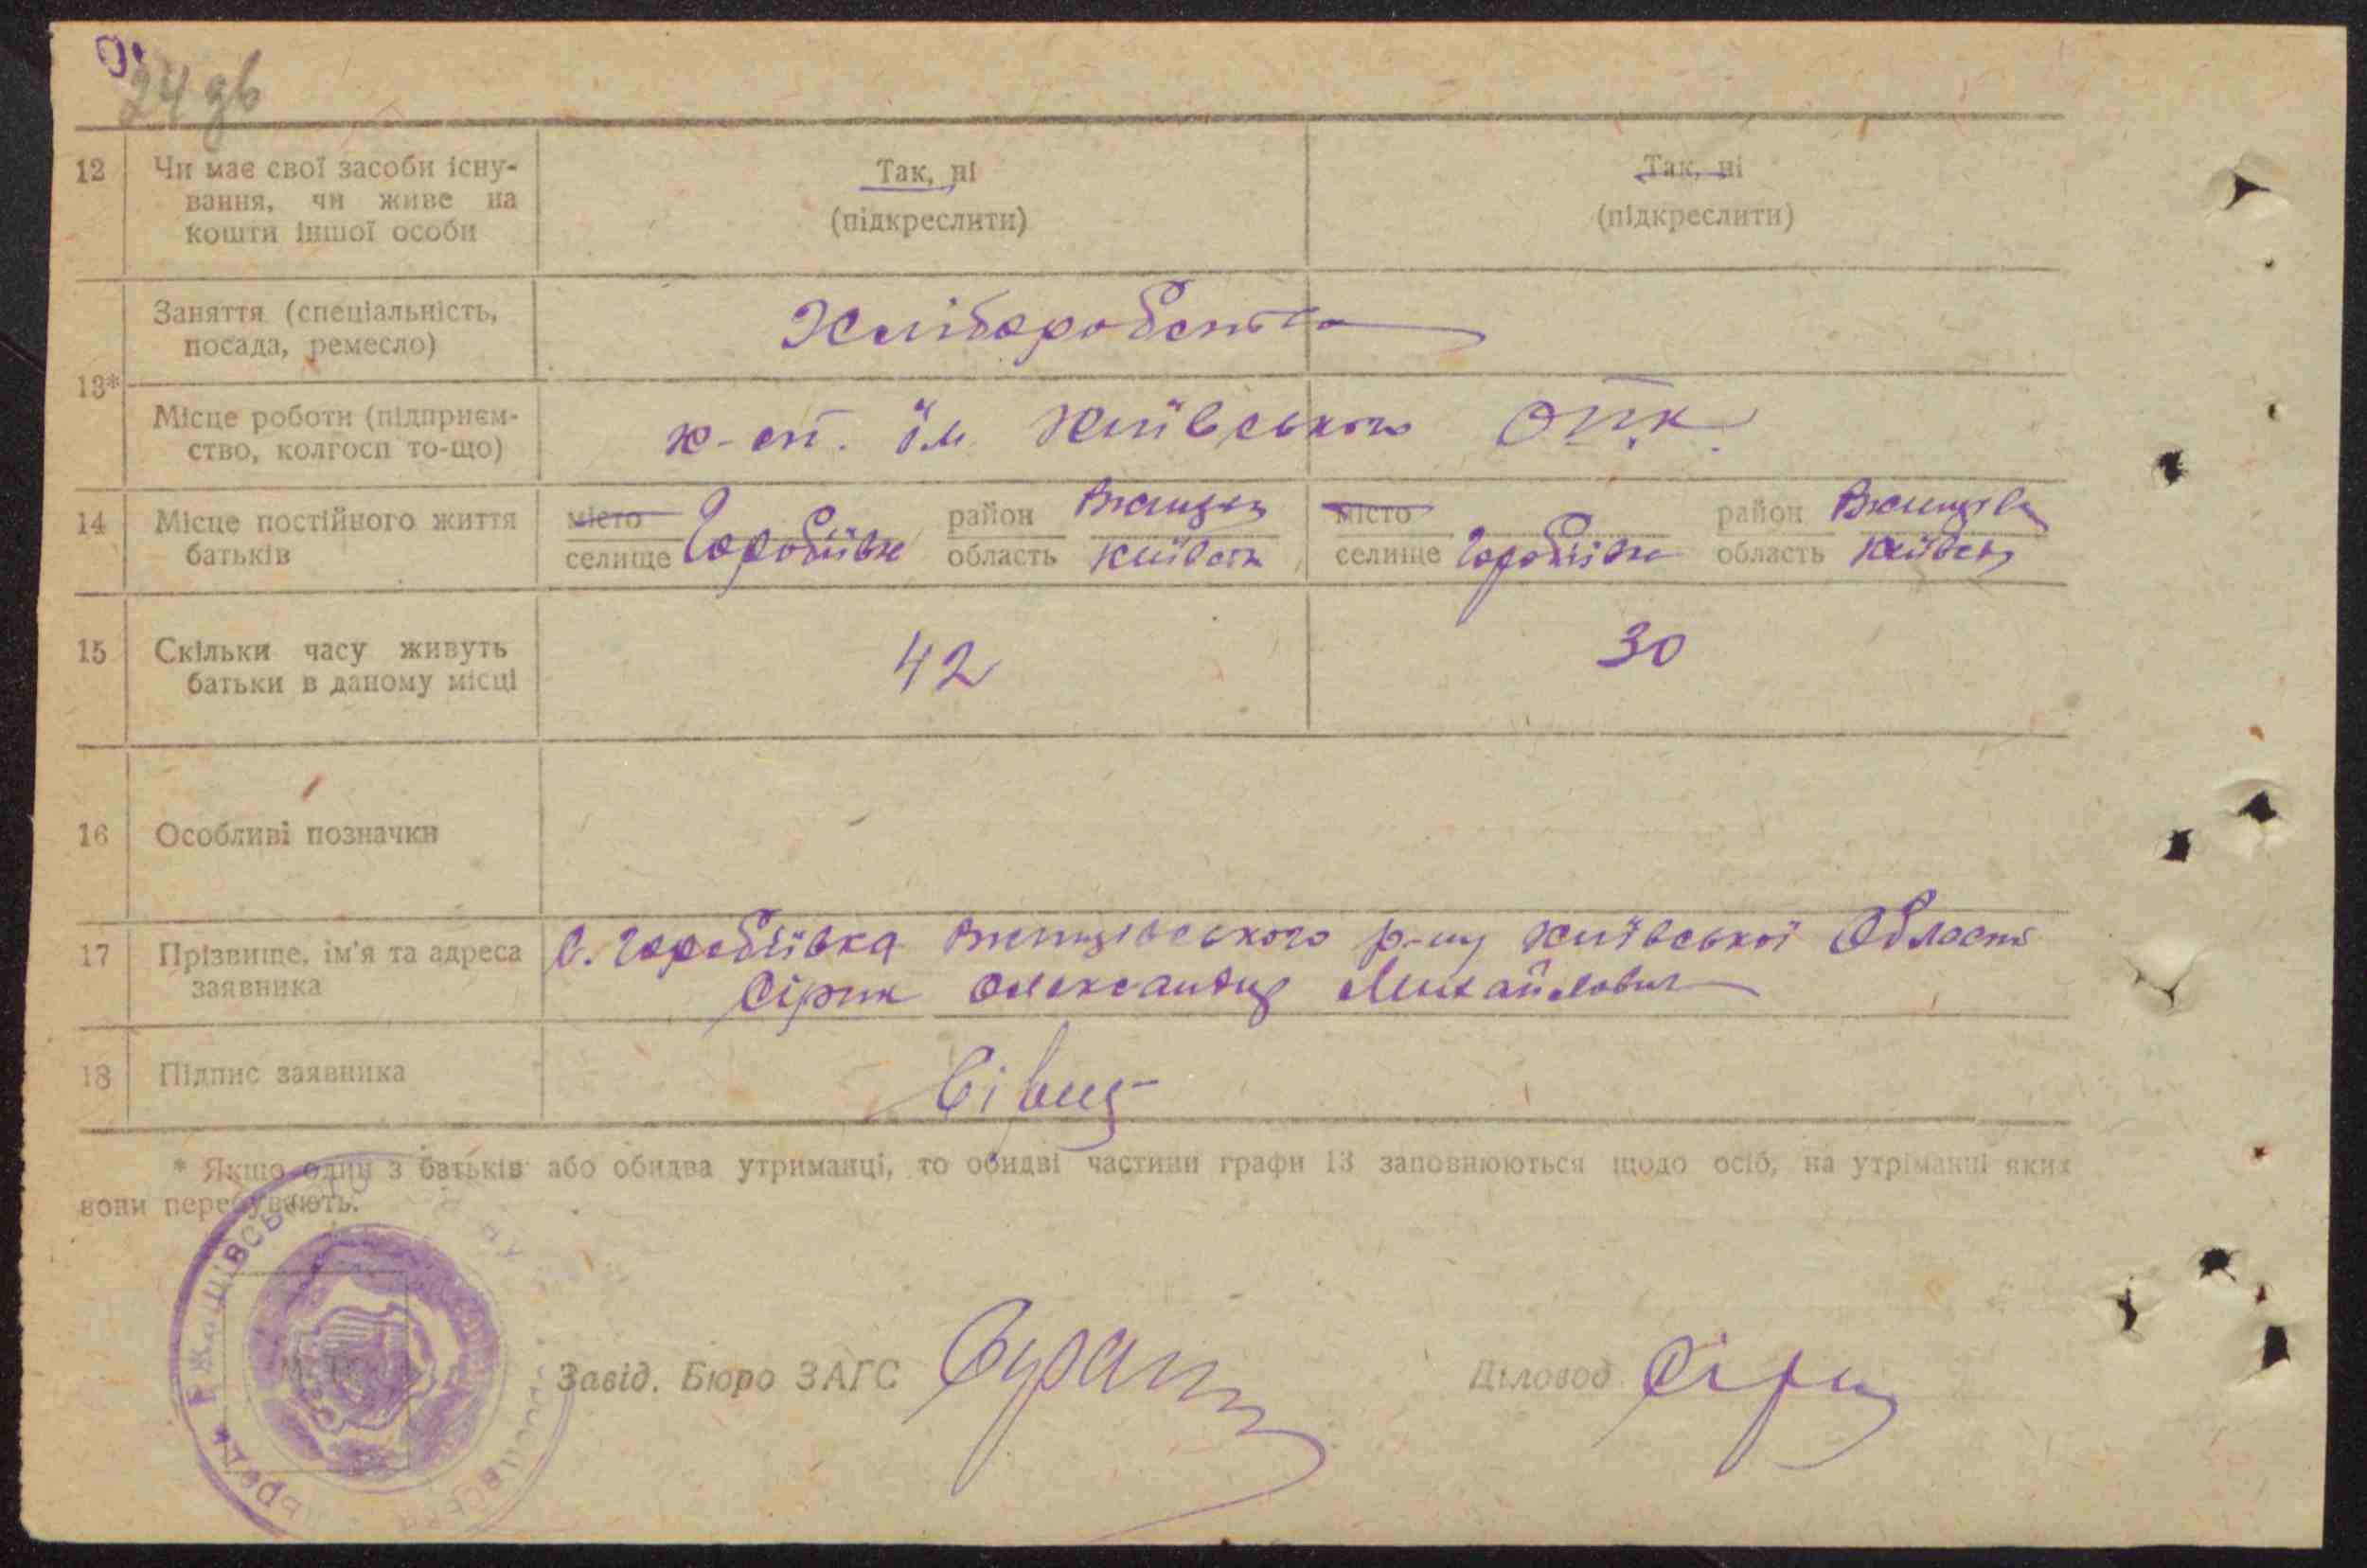 24 зв
12 Чи має свої засоби існу- Так, ні Так, ні
вання, чи живе на (підкреслити) (підкреслити)
кошти іншої особи
Заняття (спеціальність, Хліборобство
посада, ремесло)
13*
Місце роботи (підприєм- к-сп. ім Київського ОПК
ство, колгосп то-що)
14 Місце постійного життя місто район місто район
батьків селище Горобіївка область Київськ селище Горобіївка область Київськ
15 Скільки часу живуть 42 30
батьки в даному місці
16 Особливі позначки
17 Прізвище, ім'я та адреса С. Горобіївка р-ну Київської Області
заявника Сірик Олександр Михайлович
18 Підпис заявника
* Якщо один з батьків або обидва утриманці, то обидві частини графи 13 заповнюються щодо осіб, на утріманні яких
вони перебувають.
Завід. Бюро ЗАГС Діловод